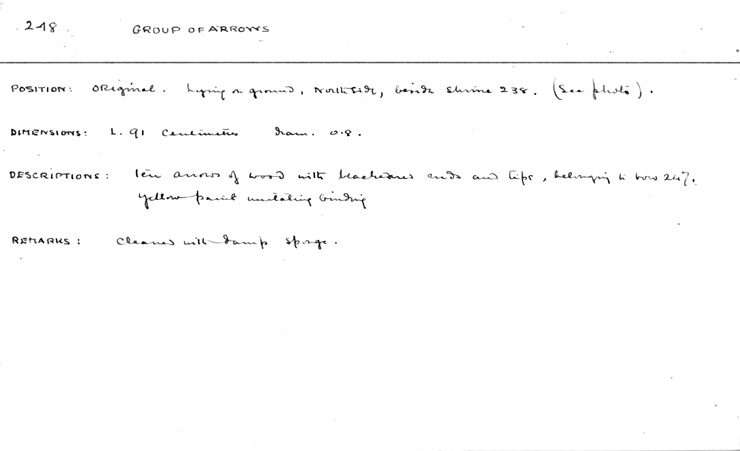 248. GROUP OF ARROWS
POSITION: Original. Lying on ground, North side, beside shrine 238. (See photo).
DIMENSIONS: L. 91 Centimetres diam. 0.8.
DESCRIPTIONS: Ten arrows of wood with blackened ends and tips, belonging to bow 247.
Yellow paint imitating binding
REMARKS: Cleaned with damp sponge.